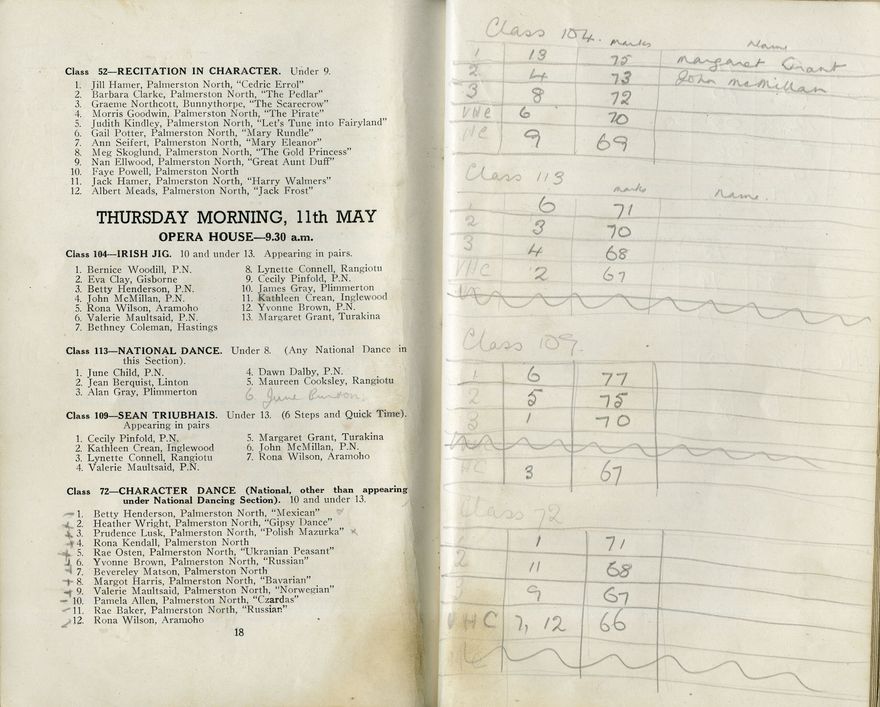 Class 52—RECITATION IN CHARACTER. Under 9.
1. Jill Hamer, Palmerston North, "Cedric Errol"
2. Barbara Clarke, Palmerston North, "The Pedlar"
3. Graeme Northcott, Bunnythorpe, "The Scarecrow"
4. Morris Goodwin, Palmerston North, "The Pirate"
5. Judith Kindley, Palmerston North, "Let's Tune into Fairyland"
6. Gail Potter, Palmerston North, "Mary Rundle"
7. Ann Seifert, Palmerston North, "Mary Eleanor"
8. Meg Skoglund, Palmerston North, "The Gold Princess"
9. Nan Ellwood, Palmerston North, "Great Aunt Duff"
10. Faye Powell, Palmerston North
11. Jack Hamer, Palmerston North, "Harry Walmers"
12. Albert Meads, Palmerston North, "Jack Frost"
THURSDAY MORNING, 11th MAY
OPERA HOUSE—9.30 a.m.
Class 104—IRISH JIG. 10 and under 13. Appearing in pairs.
1. Bernice Woodill, P.N.
2. Eva Clay, Gisborne
3. Betty Henderson, P.N.
4. John McMillan, P.N.
5. Rona Wilson, Aramoho
6. Valerie Maultsaid, P.N.
7. Bethney Coleman, Hastings
8. Lynette Connell, Rangiotu
9. Cecily Pinfold, P.N.
10. James Gray, Plimmerton
11. Kathleen Crean, Inglewood
12. Yvonne Brown, P.N.
13. Margaret Grant, Turakina
Class 113—NATIONAL DANCE. Under 8. (Any National Dance in
this Section).
1. June Child, P.N.
2. Jean Berquist, Linton
3. Alan Gray, Plimmerton
4. Dawn Dalby, P.N.
5. Maureen Cooksley, Rangiotu
6. June
Class 109—SEAN TRIUBHAIS. Under 13. (6 Steps and Quick Time).
Appearing in pairs
1. Cecily Pinfold, P.N.
2. Kathleen Crean, Inglewood
3. Lynette Connell, Rangiotu
4. Valerie Maultsaid, P.N.
5. Margaret Grant, Turakina
6. John McMillan, P.N.
7. Rona Wilson, Aramoho
Class 72—CHARACTER DANCE (National, other than appearing
under National Dancing Section). 10 and under 13.
1. Betty Henderson, Palmerston North, "Mexican"
2. Heather Wright, Palmerston North, "Gipsy Dance"
3. Prudence Lusk, Palmerston North, "Polish Mazurka" x
4. Rona Kendall, Palmerston North
5. Rae Osten, Palmerston North, "Ukranian Peasant"
6. Yvonne Brown, Palmerston North, "Russian"
7. Bevereley Matson, Palmerston North
8. Margot Harris, Palmerston North, "Bavarian"
9. Valerie Maultsaid, Palmerston North, "Norwegian"
10. Pamela Allen, Palmerston North, "Czardas"
11. Rae Baker, Palmerston North, "Russian"
12. Rona Wilson, Aramoho
18
Class 104.
marks Name
1 13 75 Margaret Grant
2 4 73 John McMillan
3 8 72
VHC 6 70
HC 9 69
Class 113
marks name.
1 6 71
2 3 70
3 4 68
VHC 2 67
Class 109.
1 6 77
2 5 75
3 1 70
HC 3 67
Class 72
1 1 71
2 11 68
3 9 67
VHC 7, 12 66